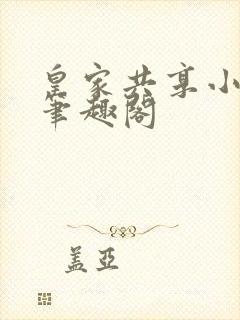 皇家共享小
笔趣阁
盖亚